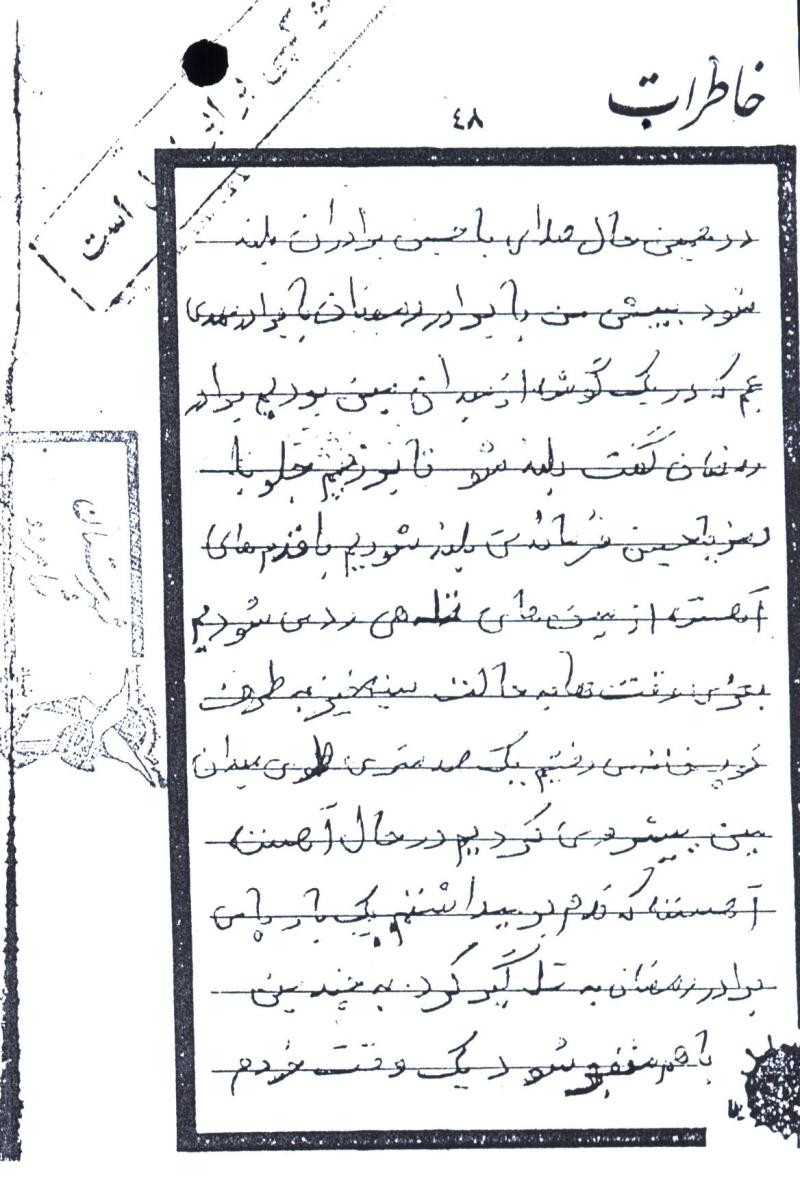 خاطرات
٤٨
است
در همین حال صدای یا حسین برادران بلند
شود پیش من با برادر رمضان با برادر مهدی
که در یک گوشه از میدان مین بودیم برادر
رمضان گفت بلند شو تا بو رویم جلو با
رمز یا حسین فرماندهی بلند شودیم با قدم های
آهسته از مین های می رد می شودیم
بعضی وقت ها به حالت سینه خیز به طرف
می رفتیم یک صد متری طوی میدان
مین پیشروی کردیم در حال آهسته
آهسته که قدم بر میداشتیم یک بار پای
برادر رمضان به تله گیر کرد به چندین
با هم منفجر شود یک وقت خودم